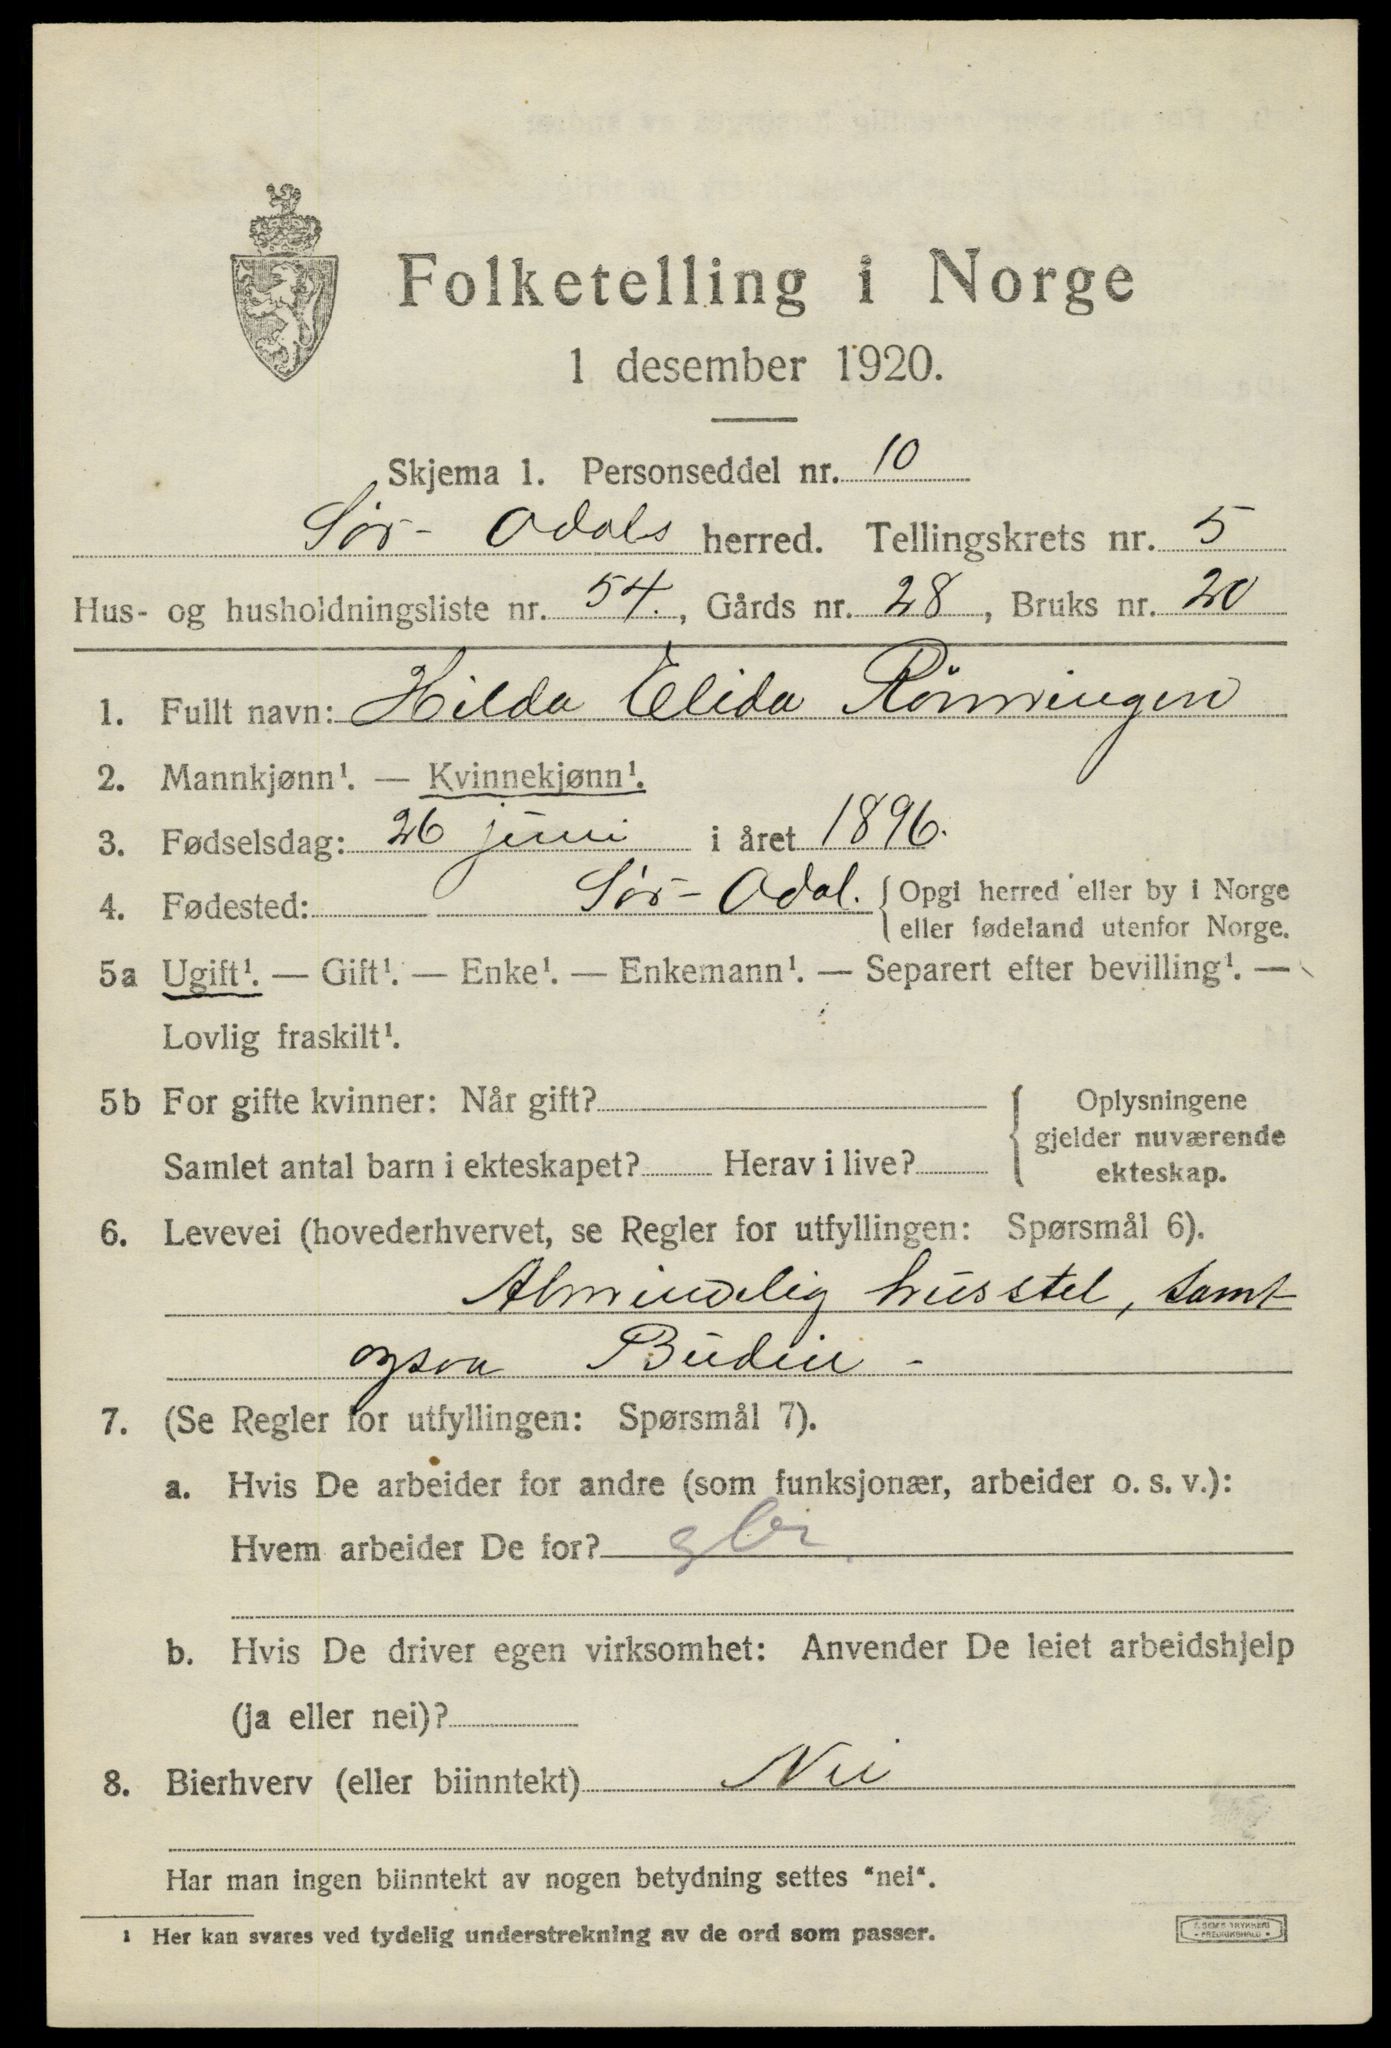 Folketelling i Norge
1 desember 1920.
Skjema 1. Personseddel nr. 10
Sör- Odals herred. Tellingskrets nr. 5
Hus- og husholdningsliste nr. 54., Gårds nr. 28, Bruks nr. 20
1. Fullt navn: Hilda Elida Rönningen
2. Mannkjønn¹. — Kvinnekjønn¹.
3. Fødselsdag: 26 juni i året 1896.
4. Fødested: Sör- Odal. { Opgi herred eller by i Norge
eller fødeland utenfor Norge.
5a Ugift¹. — Gift¹. — Enke¹. — Enkemann¹. — Separert efter bevilling¹. —
Lovlig fraskilt¹.
5b For gifte kvinner: Når gift? { Oplysningene
gjelder nuværende
Samlet antal barn i ekteskapet? Herav i live? ekteskap.
6. Levevei (hovederhvervet, se Regler for utfyllingen: Spørsmål 6).
Almindelig husstel, samt
ogsaa Budeie -
7. (Se Regler for utfyllingen: Spørsmål 7).
a. Hvis De arbeider for andre (som funksjonær, arbeider o. s. v.):
Hvem arbeider De for?
b. Hvis De driver egen virksomhet: Anvender De leiet arbeidshjelp
(ja eller nei)?
8. Bierhverv (eller biinntekt) Nei
Har man ingen biinntekt av nogen betydning settes "nei".
1 Her kan svares ved tydelig understrekning av de ord som passer.